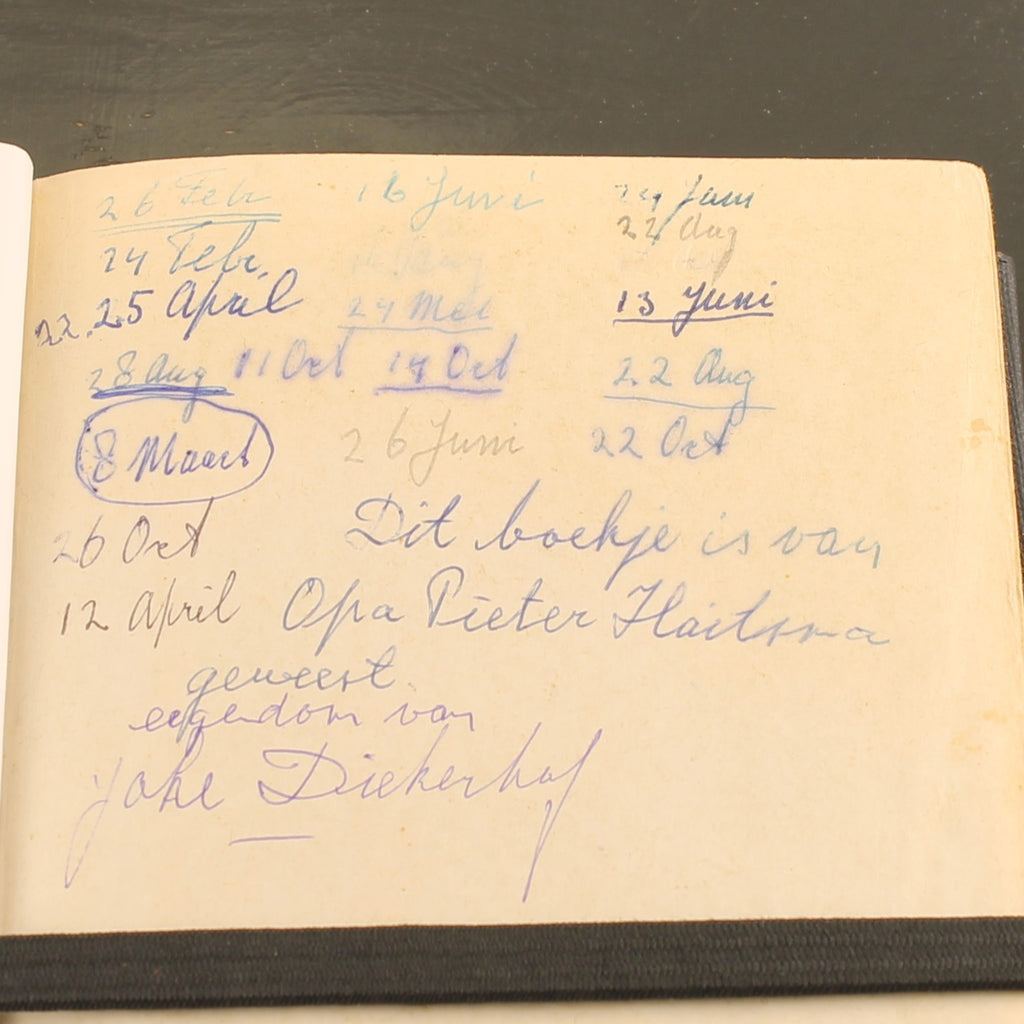 26 Febr 16 Juni 24 Juni
24 Febr 22 Aug
22. 25 April 24 Mei 13 Juni
28 Aug 11 Oct 14 Oct 22 Aug
8 Maart 26 Juni 22 Oct
26 Oct Dit boekje is van
12 April Opa Pieter Haitsma
geweest
eigendom van
Joke Diekerhof